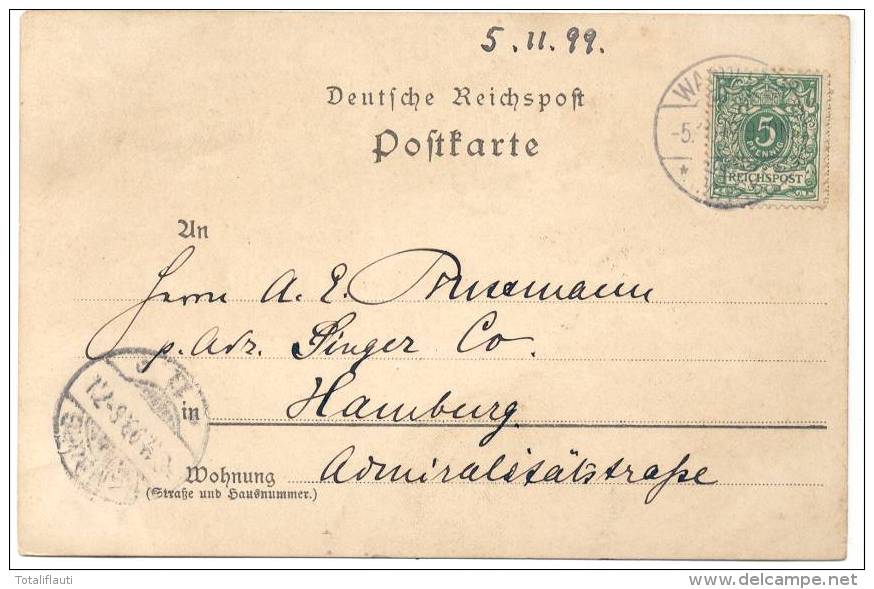 5.11.99.
Deutsche Reichspost
Postkarte
WA
-5.
5
PFENNIG
REICHSPOST
An
Herrn A. E.
p. Adr. Singer Co.
in Hamburg
Wohnung Admiralitätstraße
(Straße und Hausnummer.)
Totaliflauti
www.delcampe.net